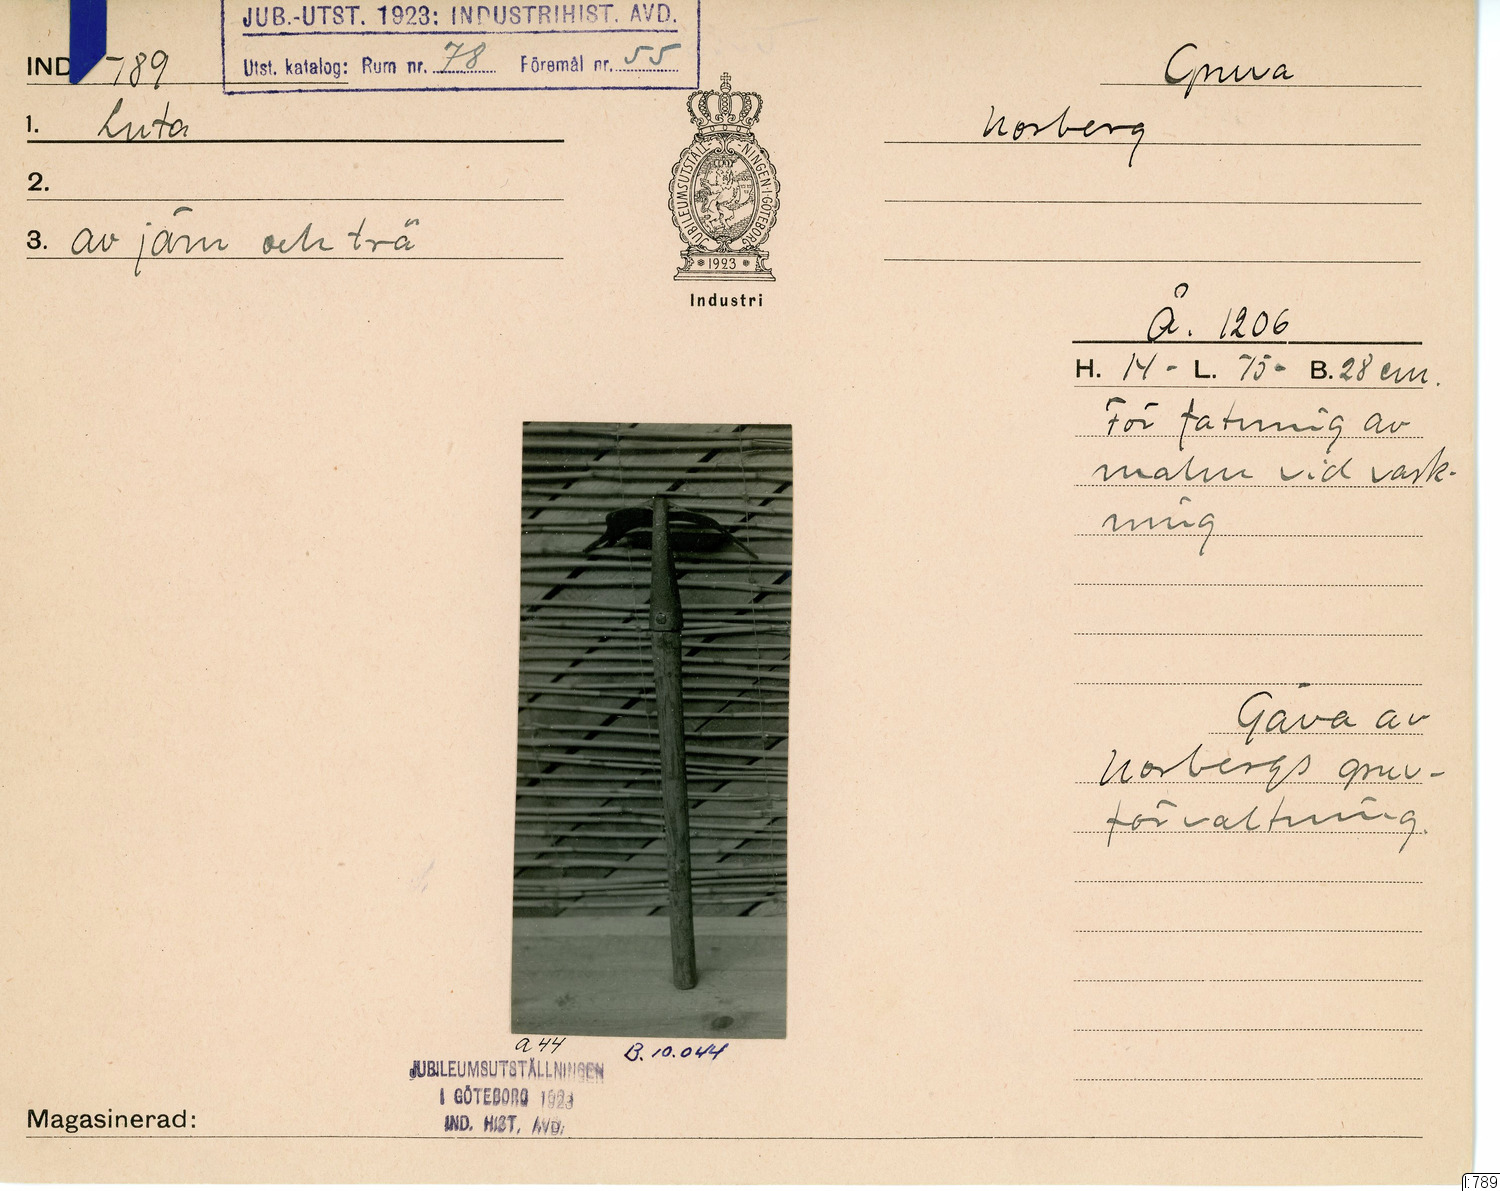 JUB.-UTST. 1923: INDUSTRIHIST. AVD.
Utst. katalog: Rum nr. 78 Föremål nr. 55
IND 789
1. Luta
2.
3. av järn och trä
JUBILEUMSUTSTÄLLNINGEN I GÖTEBORG
1923
Industri
Gruva
Norberg
Å. 1206
H. 14 - L. 75 - B. 28 cm.
För fattning av
malm vid vask-
ning
Gåva av
Norbergs gruv-
förvaltning.
a 44
B. 10.044
JUBILEUMSUTSTÄLLNINGEN
I GÖTEBORG 1923
IND. HIST. AVD.
Magasinerad:
I:789